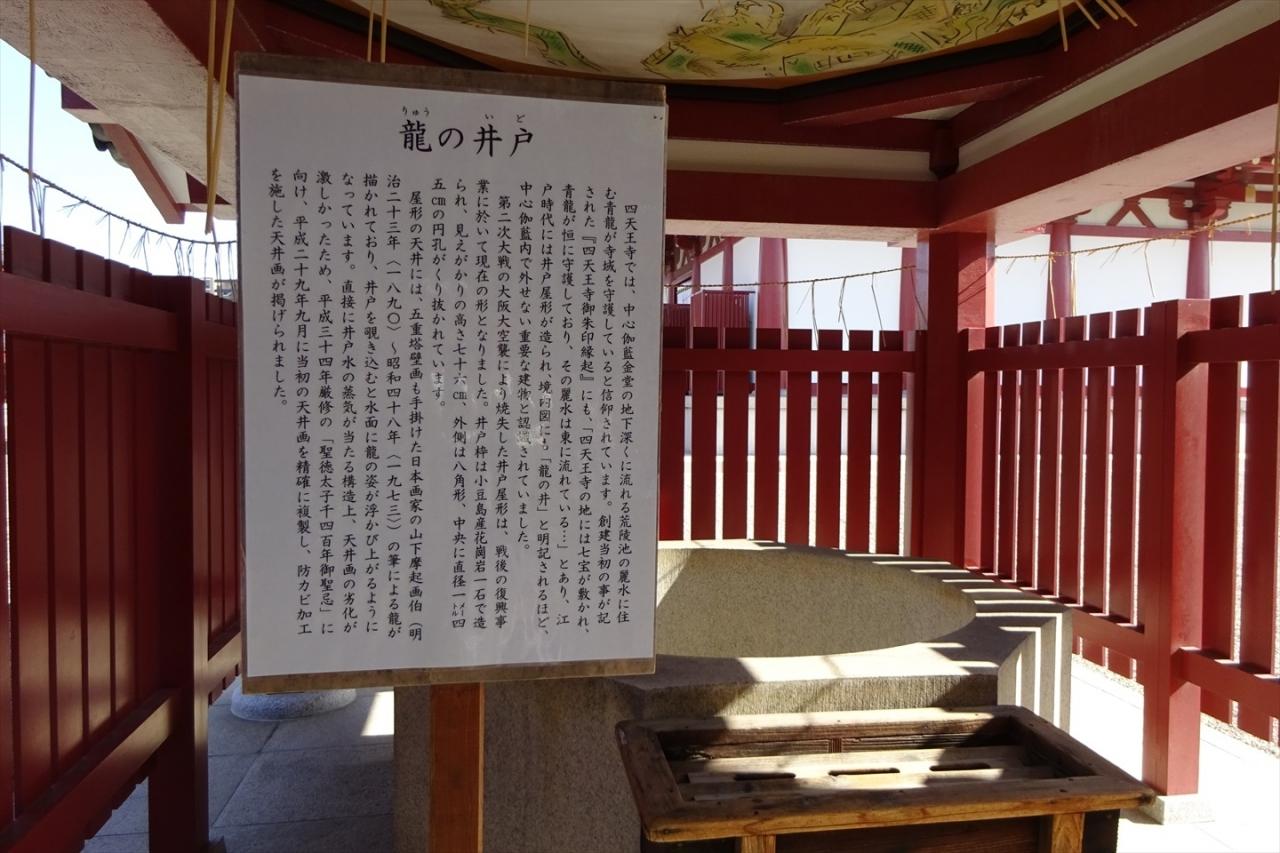 りゅう い ど
龍の井戸
四天王寺では、中心伽藍金堂の地下深くに流れる荒陵池の麗水に住
む青龍が寺域を守護していると信仰されています。創建当初の事が記
された『四天王寺御朱印縁起』にも、「四天王寺の地には七宝が敷かれ、
青龍が恒に守護しており、その麗水は東に流れている…」とあり、江
戸時代には井戸屋形が造られ、境内図にも「龍の井」と明記されるほど、
中心伽藍内で外せない重要な建物と認識されていました。
第二次大戦の大阪大空襲により焼失した井戸屋形は、戦後の復興事
業に於いて現在の形となりました。井戸枠は小豆島産花崗岩一石で造
られ、見えがかりの高さ七十六㎝、外側は八角形、中央に直径一㍍四
五㎝の円孔がくり抜かれています。
屋形の天井には、五重塔壁画も手掛けた日本画家の山下摩起画伯（明
治二十三年〈一八九〇〉～昭和四十八年〈一九七三〉）の筆による龍が
描かれており、井戸を覗き込むと水面に龍の姿が浮かび上がるように
なっています。直接に井戸水の蒸気が当たる構造上、天井画の劣化が
激しかったため、平成三十四年厳修の「聖徳太子千四百年御聖忌」に
向け、平成二十九年九月に当初の天井画を精確に複製し、防カビ加工
を施した天井画が掲げられました。